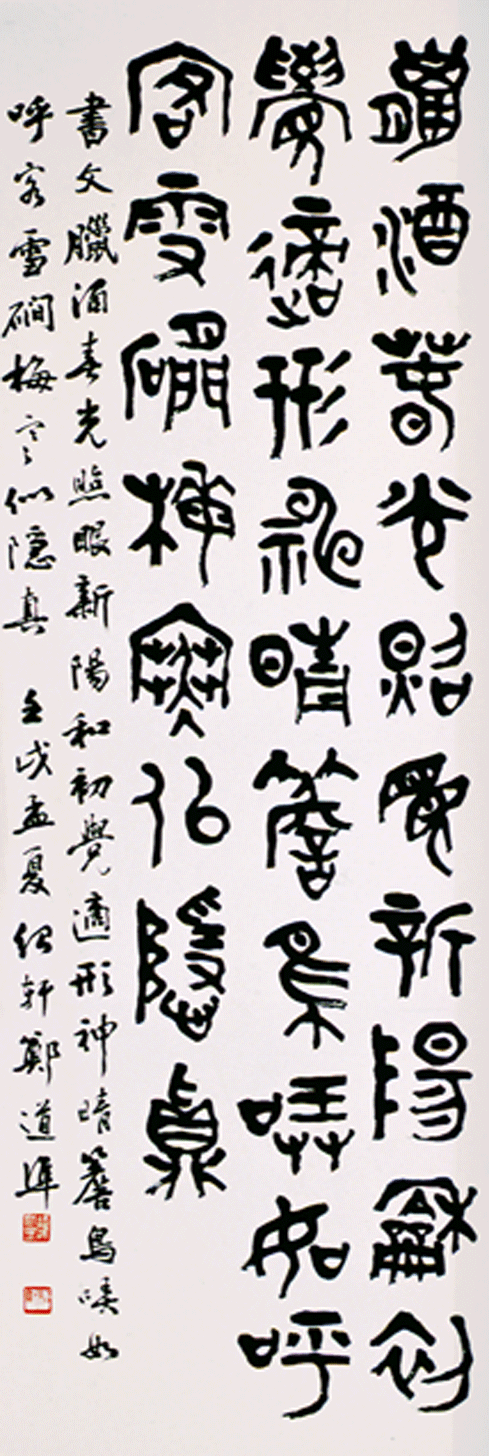 臘酒春光照眼新陽龢初
覺適形神晴簷鳥哢如呼
客雪磵梅寒似隱真
書文臘酒春光照眼新陽和初覺適形神晴簷鳥哢如
呼客雪磵梅寒似隱真 壬戌孟夏紹軒鄭道